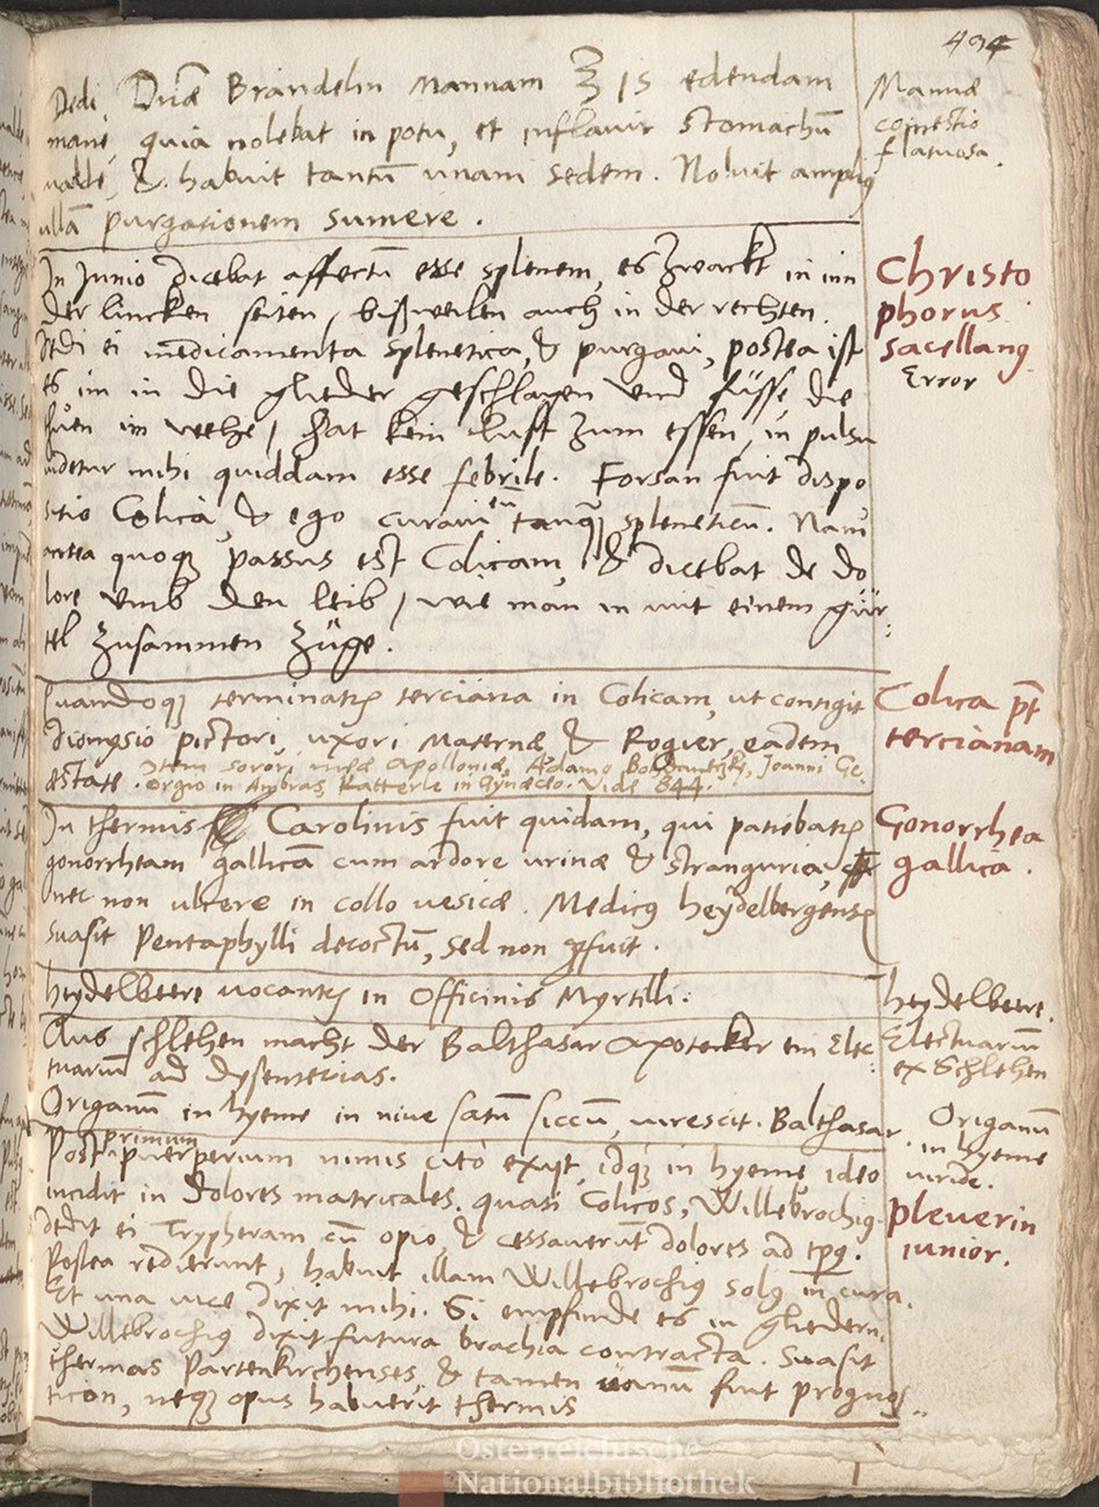 494
Dedi Duae Brandelin Mannam ℥ 15 edendam
mane, quia nolebat in potu, et inflavit stomachū
valde, &. habuit tantū unam sedem. Noluit ampliꝯ
ullā purgationem sumere.
Mannae
comestio
flatuosa.
In Junio dicebat affectū esse splenem, es zwackt in inn
der lincken seiten, bißweilen auch in der rechten.
Dedi ei medicamenta splenetica, & purgavi, postea ist
es im in die glieder geschlagen und füsse, die
thuen im wehe, hat kein lust zum essen, in pulsu
videtur mihi quiddam esse febrile. Forsan fuit dispo
sitio Colica, & ego curavi eū tanqꝫ spleneticū. Nam
antea quoqꝫ passus est Colicam, & dicebat de do
lore umb den leib, wie man in mit einem gür:
tel zusammen züge.
Christo
phorus
sacellanꝯ
Error
Quandoqꝫ terminatur terciana in Colicam, ut contigit
Dionysio pictori, uxori Maternae & Rogier, eadem
aestate. Item sorori meae Apolloniae, Adamo, Joanni Ge:
orgio in Ambras, Katterle in Gynaeceo. Vide 844.
Colica pt
tercianam
In thermis Carolinis fuit quidam, qui patiebatur
gonorrheam gallicā cum ardore urinae & stranguria,
nec non ulcere in collo vesicae. Medicꝯ heydelbergensis
suasit Pentaphylli decoctū, sed non ꝓfuit.
Gonorrhea
gallica.
heydelbeere vocantur in Officinis Myrtilli.
heydelbeere.
Aus schlehen macht der Balthasar Apotecker ein Elec:
tuariū ad dysenterias.
Electuariū
ex Schlehen
Origanū in hyeme in nive satū siccū, virescit. Balthasar.
Origanū
in hyeme
viride.
Post primum puerperium nimis cito exijt, idqꝫ in hyeme, ideo
incidit in dolores matricales, quasi Colicos, Willebrochiꝯ
dedit ei Trypheram cū opio, & cessaverūt dolores ad tpꝯ.
Postea redierunt, habuit illam Willebrochiꝯ solꝯ in cura.
Et una vice dixit mihi. Si empfinde es in gliedern.
Willebrochiꝯ dixit futura brachia contracta. Suasit
thermas Partenkirchenses, & tamen vanū fuit prognos
ticon, neqꝫ opus habuerit thermis
pleuerin
iunior.
Österreichische
Nationalbibliothek